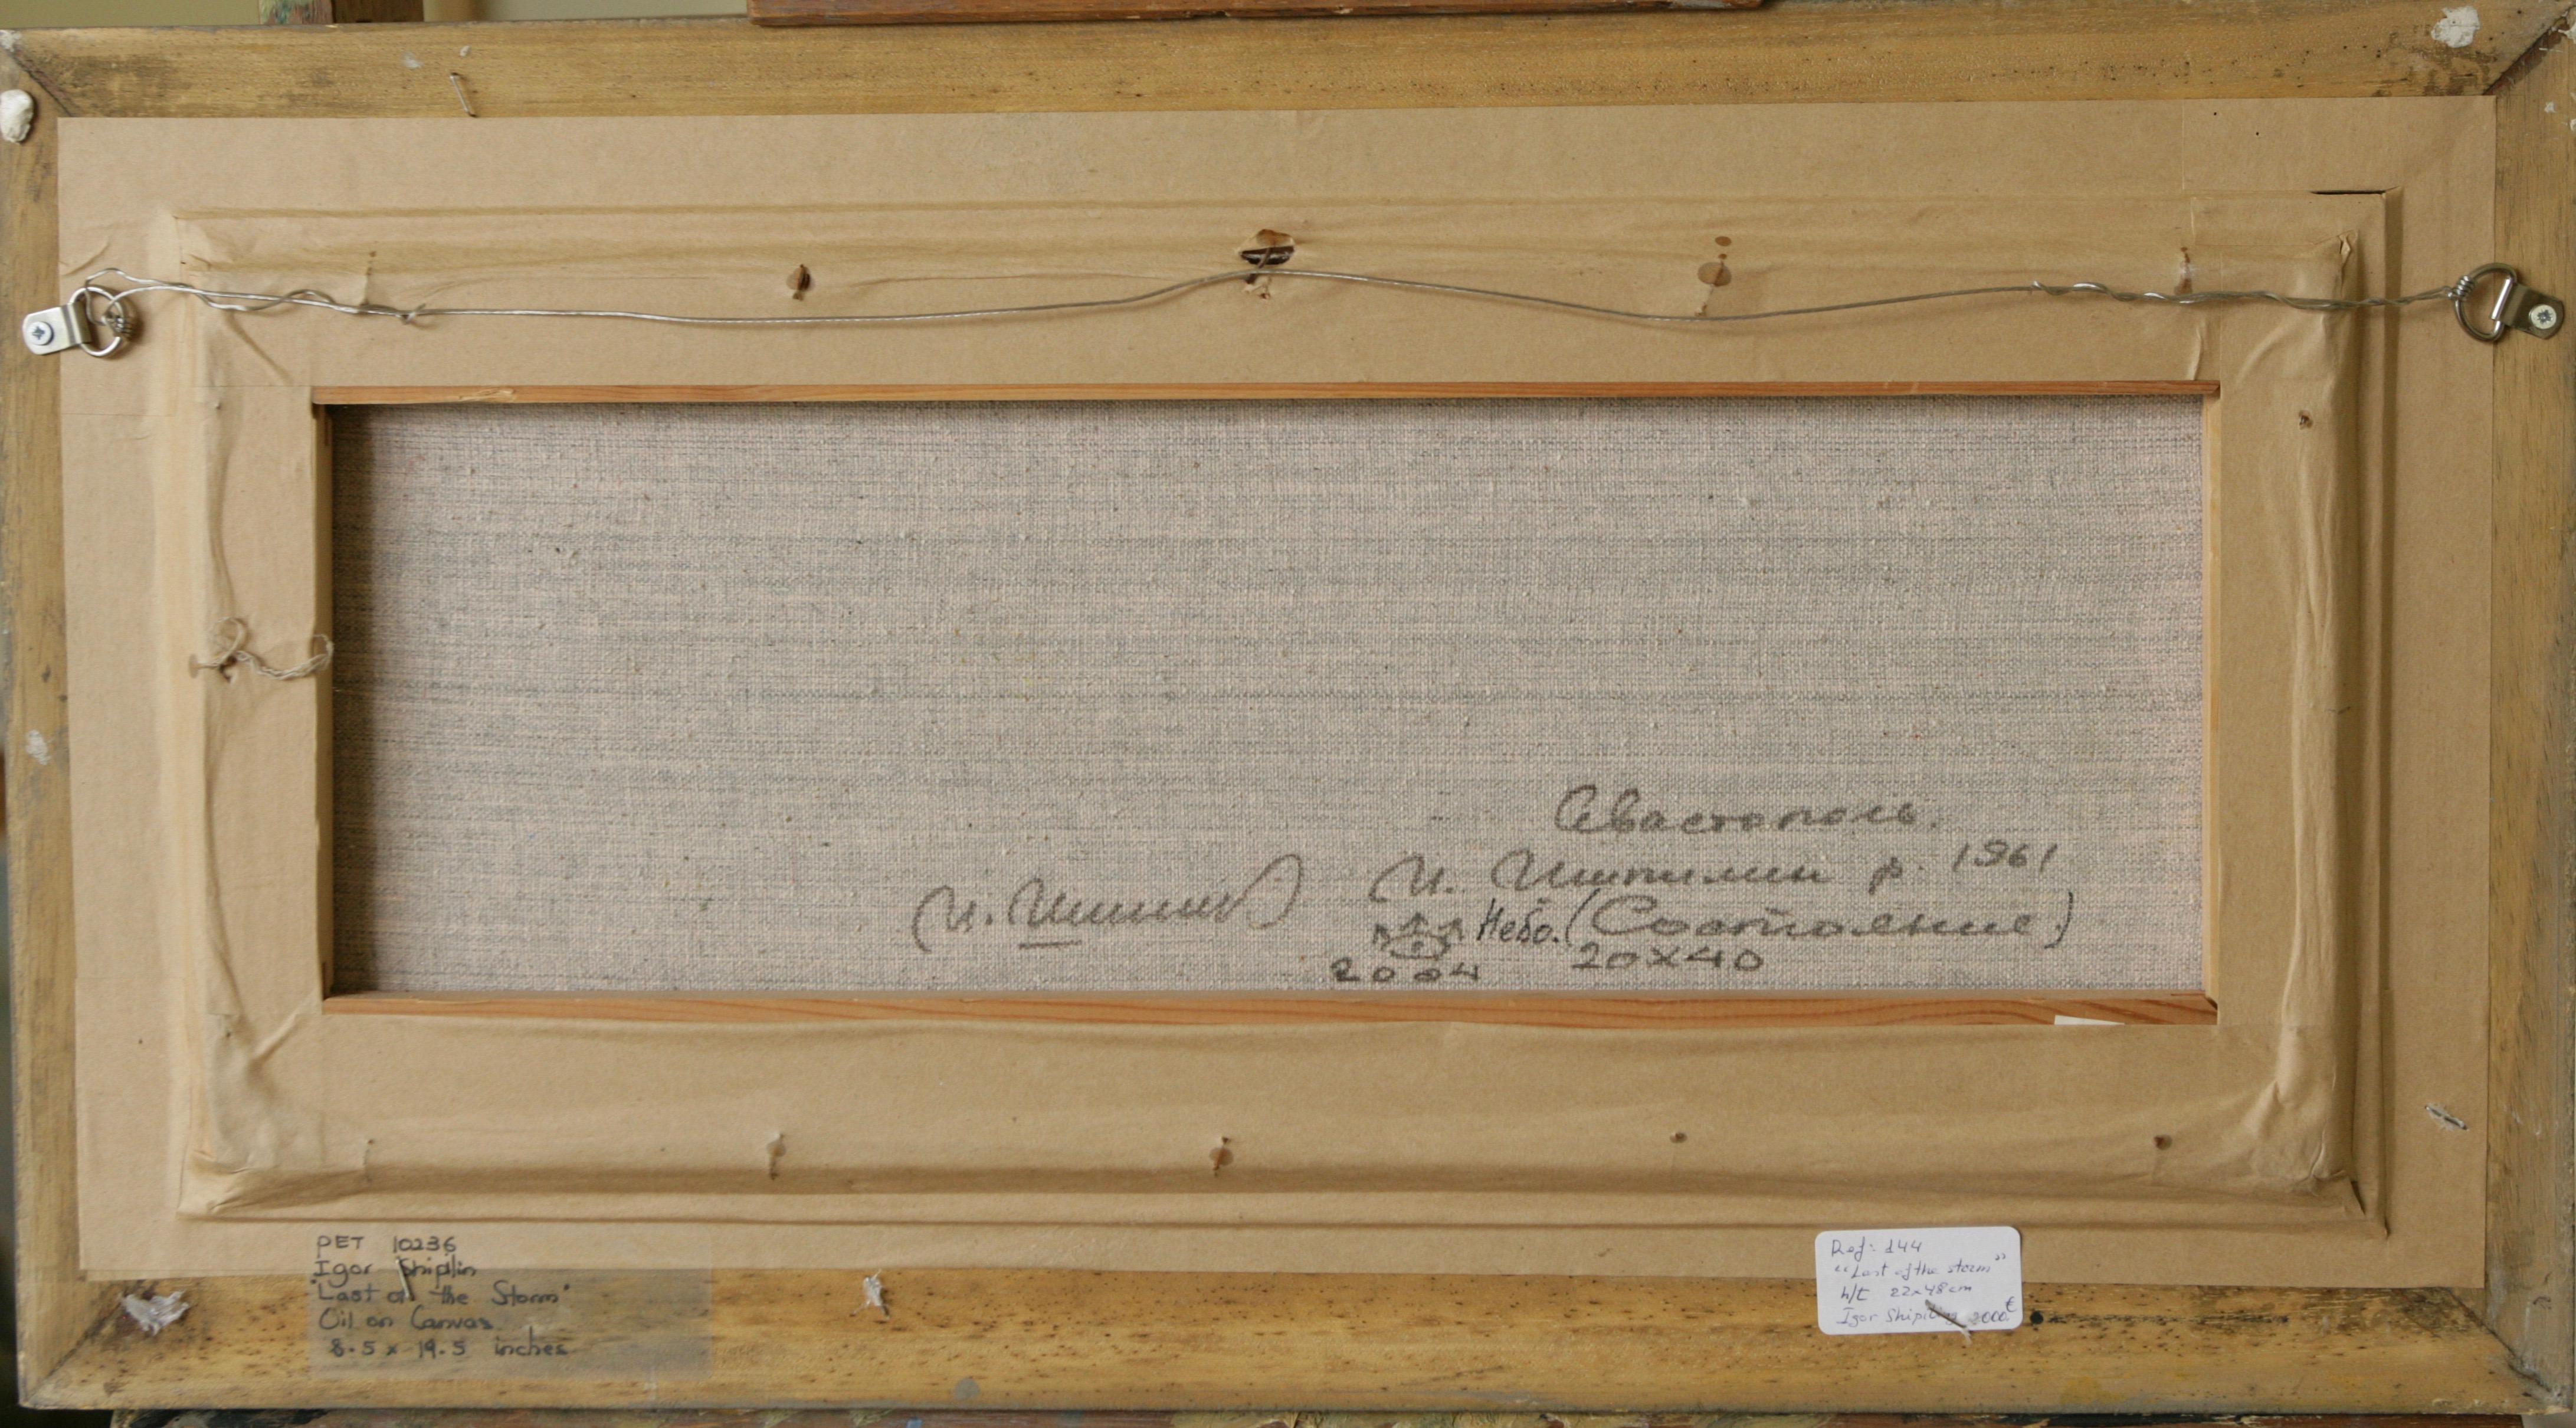 Севастополь.
И. Шипилин р. 1961
Небо. (Состояние)
2004 20х40
И. Шипилин
PET 10236
Igor Shiplin
"Last of the Storm"
Oil on Canvas
8.5 x 19.5 inches
Ref: 144
"Last of the storm"
h/t 22x48cm
Igor Shipilin 3000€